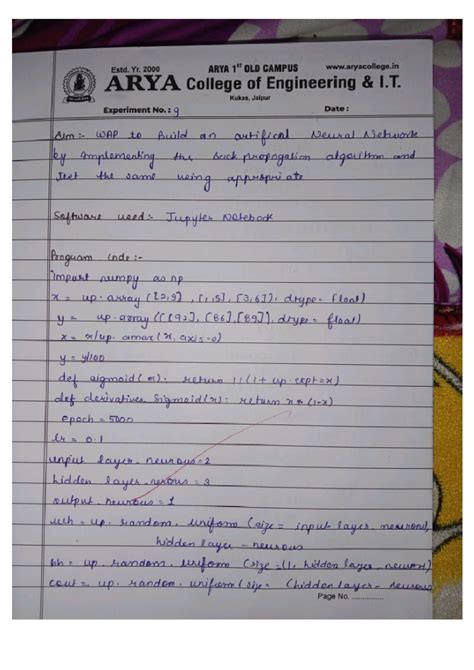 Estd. Yr. 2000
ARYA 1ST OLD CAMPUS
www.aryacollege.in
ARYA College of Engineering & I.T.
Kukas, Jaipur
Experiment No. : 9
Date :
Aim :- WAP to Build an artifical Neural Network
by implementing the Back propogation algorithm and
test the same using appropriate
Software used :- Jupyter Notebook
Program Code :-
Import numpy as np
x = np.array ([2,9], [1,5], [3,6]), dtype = float)
y = np.array (([92], [86], [89]), dtype = float)
x = x/np.amax (x, axis=0)
y = y/100
def sigmoid (x): return 1/(1+np.exp(-x)
def derivatives Sigmoid (x): return x * (1-x)
epoch = 5000
lr = 0.1
input layer_neurous = 2
hidden layer_nerous = 3
output_neurous = 1
wh = np.random.uniform (size = input layer_neurous,
hidden layer_neurous
bh = np.random.uniform (size = (1, hidden layer_neuron)
cout = np.random.uniform (size = (hidden layer_neurous
Page No. ..............